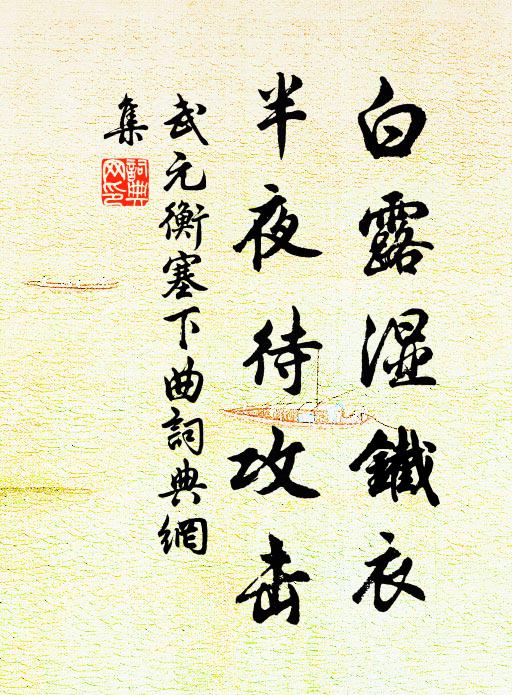 白露湿鐵衣
半夜待攻击
武元衡塞下曲詞典網
集
詞典
网印